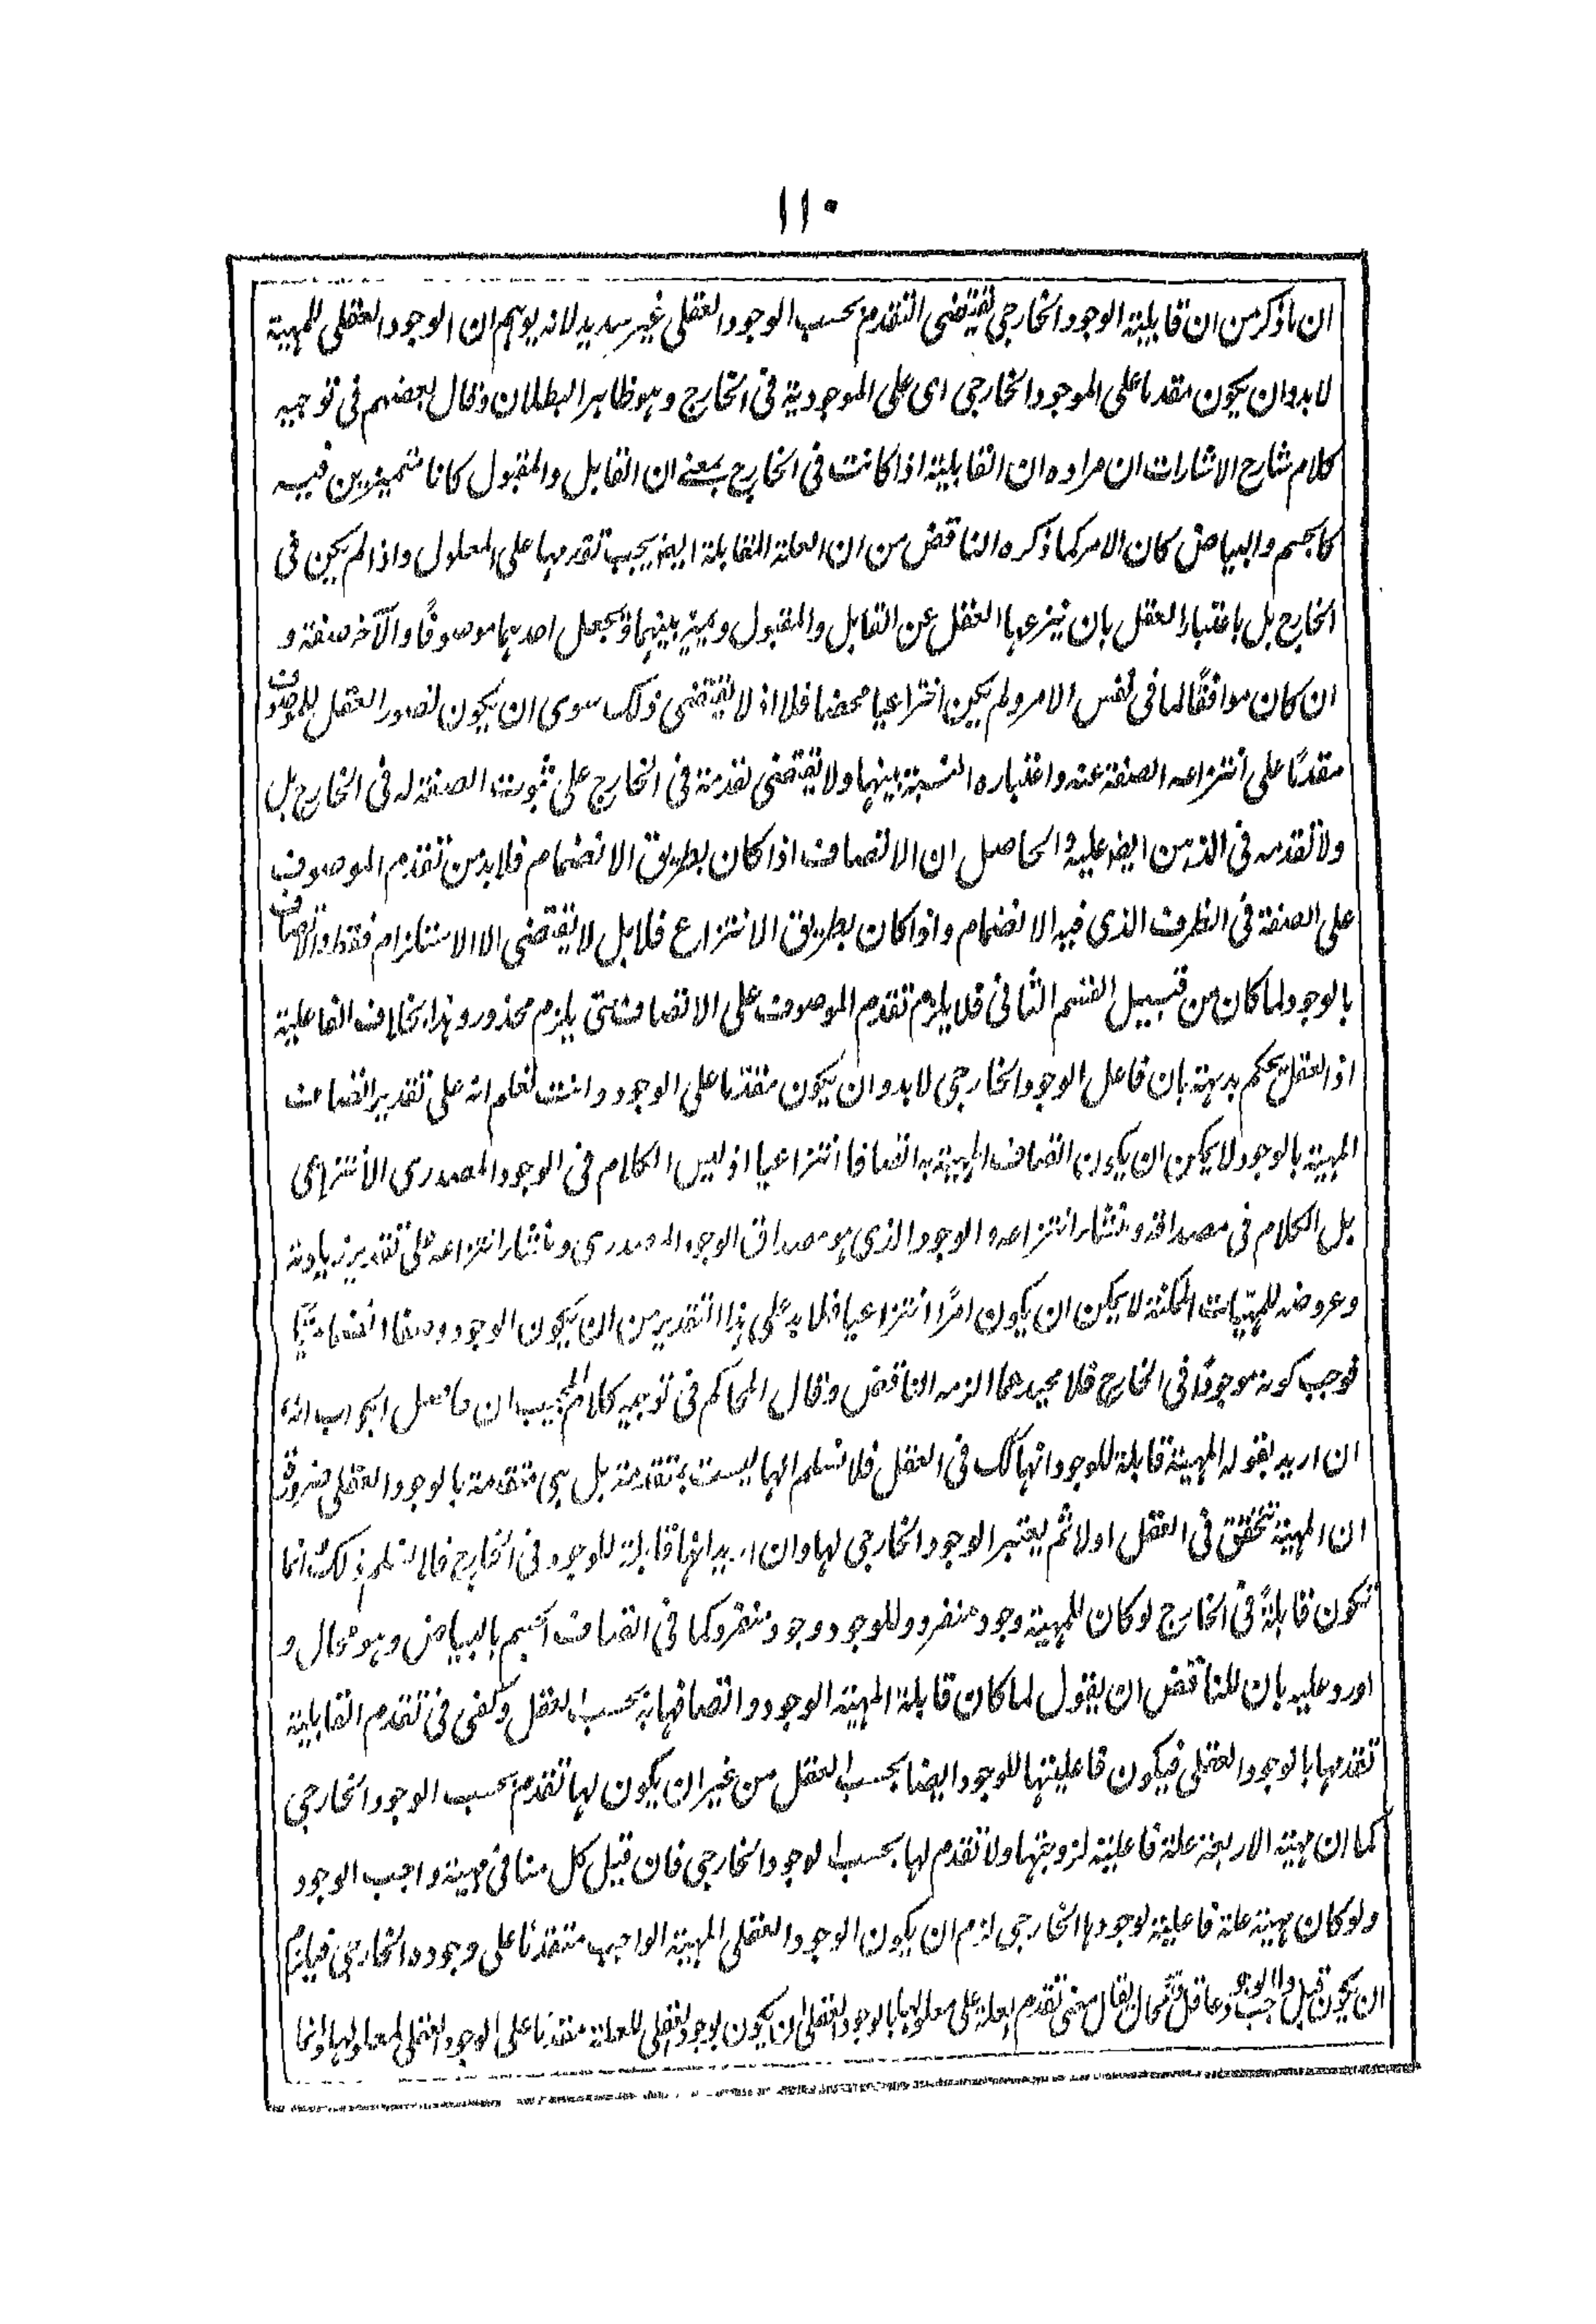 ١١٠
ان ما ذكر من ان قابلية الوجود الخارجي تقتضى التقدم بحسب الوجود العقلي غير سديد لانه يوهم ان الوجود العقلى للمهية
لا بد وان يكون مقدما على الموجود الخارجي اى على الموجودية فى الخارج وهو ظاهر البطلان وقال بعضهم فى توجيه
كلام شارح الاشارات ان مراده ان القابلية اذا كانت فى الخارج بمعنے ان القابل والمقبول كانا متميزين فيه
كالجسم والبياض كان الامر كما ذكره الناقض من ان العلة القابلة ايضا يجب تقدمها على المعلول واذا لم يكن فى
الخارج بل باعتبار العقل بان ينزعها العقل عن القابل والمقبول ويميز بينهما ويجعل احدهما موصوفًا والآخر صفة و
ان كان موافقًا لما فى نفس الامر ولم يكن اختراعيا محضا فلا اذ لا يقتضى ذلك سوى ان يكون تصور العقل للموصوف
مقدمًا على انتزاعه الصفة عنه واعتباره النسبة بينهما ولا يقتضى تقدمه فى الخارج على ثبوت الصفة له فى الخارج بل
ولا تقدمه فى الذهن ايضا عليه والحاصل ان الاتصاف اذا كان بطريق الانضمام فلا بد من تقدم الموصوف
على الصفة فى الظرف الذى فيه الانضمام واذا كان بطريق الانتزاع فلا بل لا يقتضى الا الاستلزام فقط والاتصاف
بالوجود لما كان من قبيل القسم الثانى فلا يلزم تقدم الموصوف على الاتصاف حتى يلزم محذور وهذا بخلاف الفاعلية
اذ العقل يحكم بديهة بان فاعل الوجود الخارجى لا بد وان يكون متقدما على الوجود وانت تعلم انه على تقدير اتصاف
المهية بالوجود لا يمكن ان يكون اتصاف المهية به اتصافا انتزاعيا اذ ليس الكلام فى الوجود المصدرى الانتزاعى
بل الكلام فى مصداقه ومنشأ انتزاعه والوجود الذى هو مصداق الوجود المصدرى ومنشأ انتزاعه على تقدير زيادته
وعروضه للمهيات الممكنة لا يمكن ان يكون امرًا انتزاعيا فلا بد على هذا التقدير من ان يكون الوجود وصفا انضماميًّا
فوجب كونه موجودًا فى الخارج فلا محيد عما الزمه الناقض وقال المحاكم فى توجيه كلام المجيب ان حاصل الجواب انه
ان اريد بقوله المهية قابلة للوجود انها كك فى العقل فلا نسلم انها ليست بمتقدمة بل هى متقدمة بالوجود العقلى ضرورة
ان المهية تتحقق فى العقل اولا ثم يعتبر الوجود الخارجى لها وان اريد انها قابلة للوجود فى الخارج فلا نسلم ذلك انما
تكون قابلةً فى الخارج لو كان للمهية وجود منفرد وللوجود وجود منفرد كما فى اتصاف الجسم بالبياض وهو محال و
اورد عليه بان للناقض ان يقول لما كان قابلة المهية الوجود واتصافها به بحسب العقل وكفى فى تقدم القابلية
تقدمها بالوجود العقلى فيكون فاعليتها للوجود ايضا بحسب العقل من غير ان يكون لها تقدم بحسب الوجود الخارجى
كما ان مهية الاربعة علة فاعلية لزوجيتها ولا تقدم لها بحسب الوجود الخارجى فان قيل كل منا فى مهية واجب الوجود
ولو كان مهية علة فاعلية لوجودها الخارجى لزم ان يكون الوجود العقلى المهية الواجب متقدمًا على وجوده الخارجى فيلزم
ان يكون قبل واجب الوجود عاقل وانه محال يقال معنى تقدم العلة على معلولها بالوجود العقلى ان يكون الوجود العقلى للعلة متقدما على الوجود العقلى لمعلولها وانما